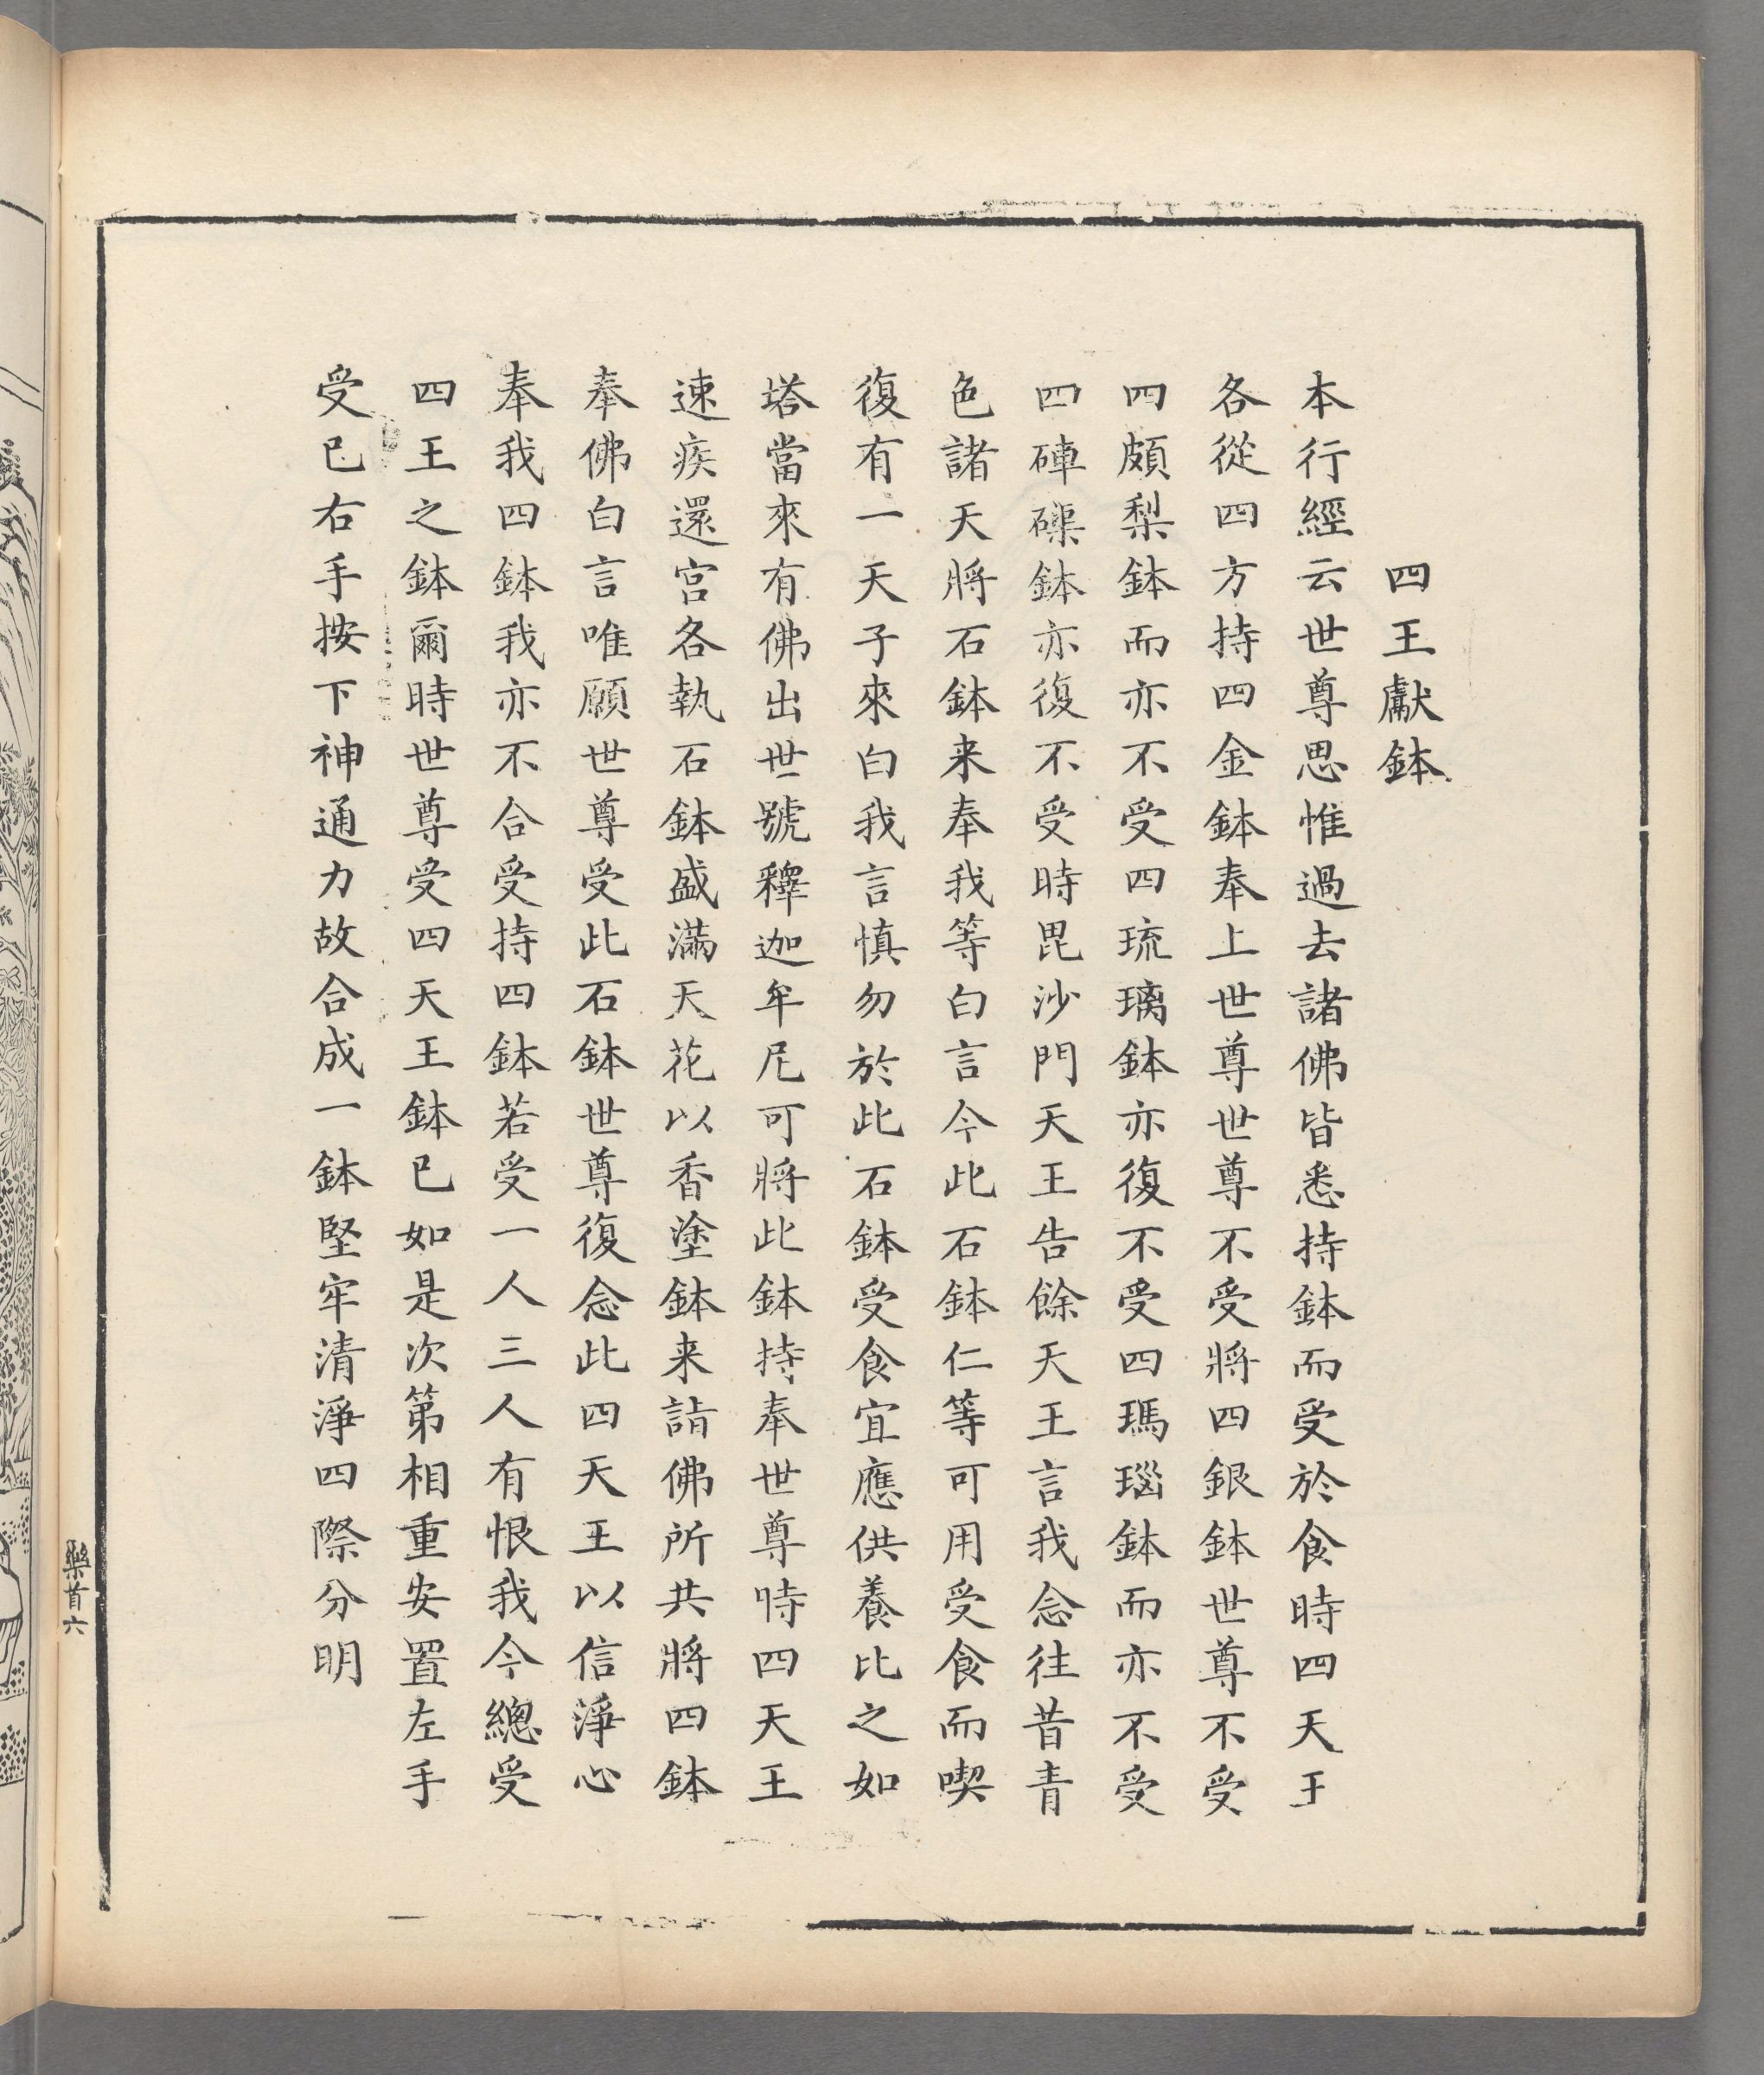 四王獻鉢
本行經云世尊思惟過去諸佛皆悉持鉢而受於食時四天王
各從四方持四金鉢奉上世尊世尊不受將四銀鉢世尊不受
四頗梨鉢而亦不受四琉璃鉢亦復不受四瑪瑙鉢而亦不受
四硨磲鉢亦復不受時毘沙門天王告餘天王言我念往昔青
色諸天將石鉢来奉我等白言今此石鉢仁等可用受食而喫
復有一天子來白我言慎勿於此石鉢受食宜應供養比之如
塔當來有佛出世號釋迦牟尼可將此鉢持奉世尊時四天王
速疾還宮各執石鉢盛滿天花以香塗鉢来詣佛所共將四鉢
奉佛白言唯願世尊受此石鉢世尊復念此四天王以信淨心
奉我四鉢我亦不合受持四鉢若受一人三人有恨我今總受
四王之鉢爾時世尊受四天王鉢已如是次第相重安置左手
受已右手按下神通力故合成一鉢堅牢清淨四際分明
藥首六